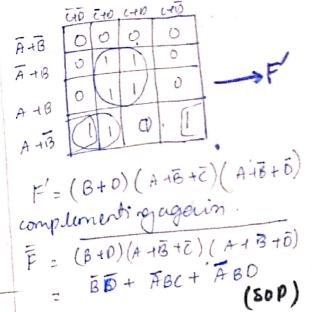 C̄+D̄ C̄+D C+D C+D̄
Ā+B̄ 0 0 0 0
Ā+B 0 1 1 0
A+B 0 1 1 0
A+B̄ 1 1 0 1
F'
F' = (B+D)(A+B̄+C̄)(A+B̄+D̄)
complementing again.
F̿ = (B+D)(A+B̄+C̄)(A+B̄+D̄)
= B̄D̄ + ĀBC + ĀBD
(SOP)